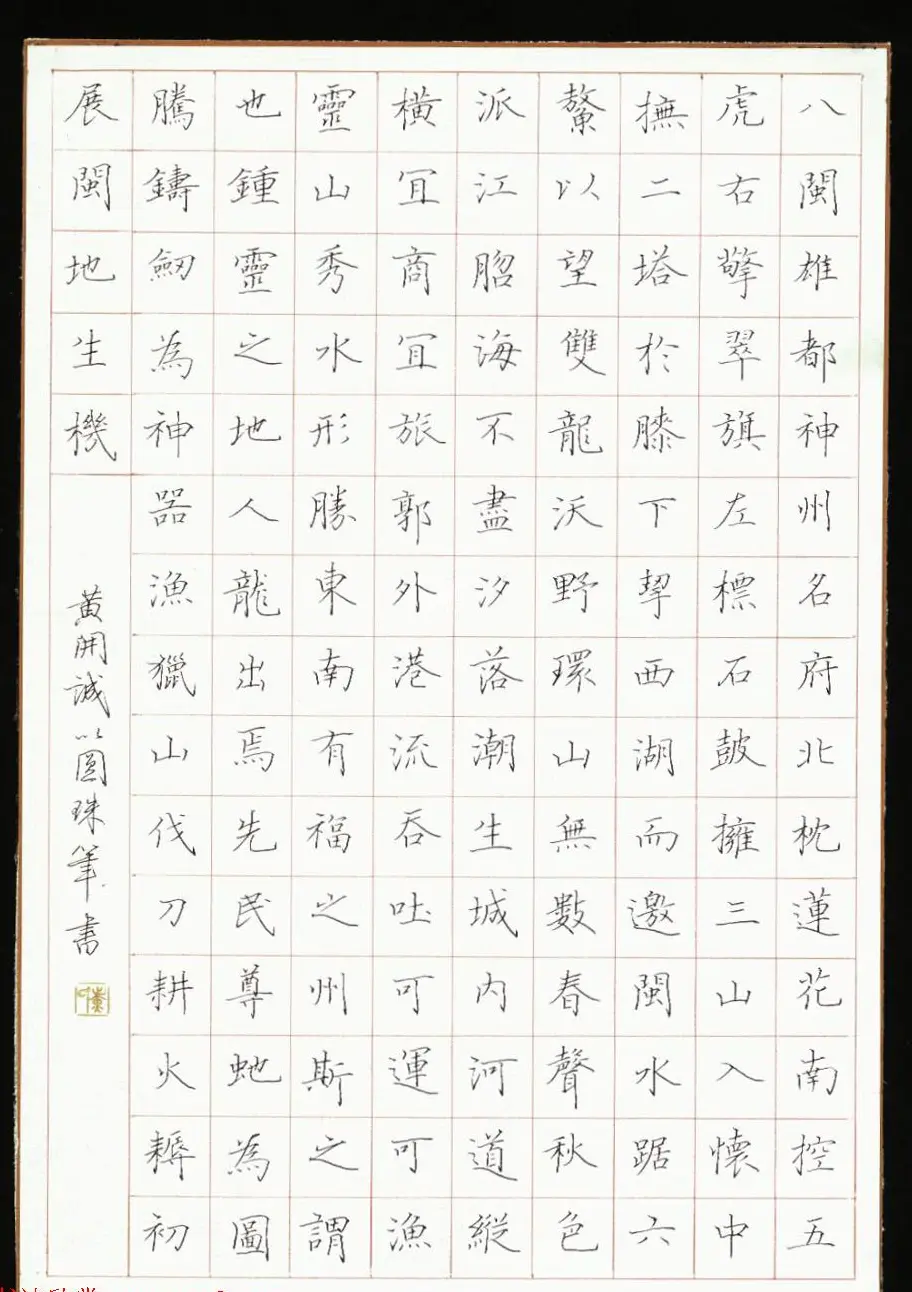 八閩雄都神州名府北枕蓮花南控五
虎右擎翠旗左標石鼓擁三山入懷中
撫二塔於膝下挈西湖而邀閩水踞六
鰲以望雙龍沃野環山無數春聲秋色
派江脗海不盡汐落潮生城內河道縱
橫宜商宜旅郭外港流吞吐可運可漁
靈山秀水形勝東南有福之州斯之謂
也鍾靈之地人龍出焉先民尊虵為圖
騰鑄劒為神器漁獵山伐刀耕火耨初
展閩地生機
黃開誠以圓珠筆書